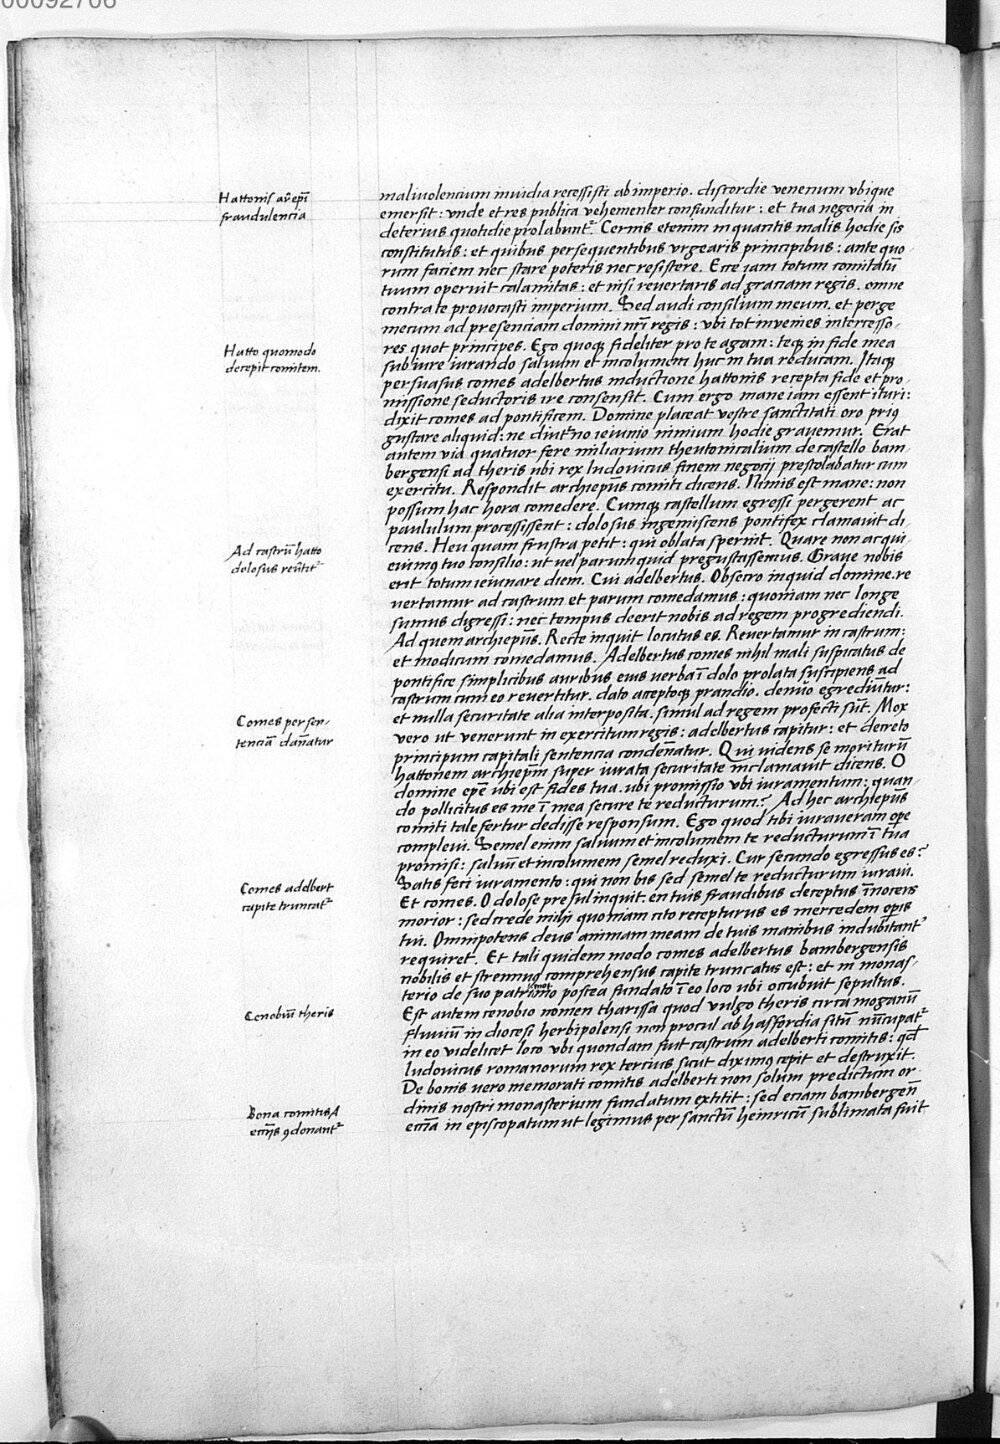 00092706
Hattonis aȓepi
fraudulencia
maliuolencium inuidia recessisti ab imperio. discordie venenum vbique
emersit: vnde et res publica vehementer confunditur: et tua negocia in
deterius quotidie prolabunt᷑. Cernis etenim in quantis malis hodie sis
constitutus: et quibus persequentibus vrgearis principibus: ante quo-
rum faciem nec stare poteris nec resistere. Ecce iam totum comitatū
tuum operuit calamitas: et nisi reuertaris ad graciam regis. omne
contra te prouocasti imperium. Sed audi consilium meum. et perge
mecum ad presenciam domini nr̄i regis: vbi tot inuenies intercesso-
Hatto quomodo
decepit comitem.
res quot principes. Ego quoqꝫ fideliter pro te agam: teqꝫ in fide mea
sub iure iurando saluum et incolumem huc in tua reducam. Itaqꝫ
persuasus comes adelbertus inductione hattonis recepta fide et pro-
missione seductoris ire consensit. Cum ergo mane iam essent ituri:
dixit comes ad pontificem. Domine placeat vestre sanctitati oro priꝰ
gustare aliquid: ne diut᷑no ieiunio nimium hodie grauemur. Erat
autem via quatuor fere miliarium theutonicalium de castello bam-
bergensi ad theris ubi rex ludouicus finem negocij prestolabatur cum
exercitu. Respondit archiep̄us comiti dicens. Nimis est mane: non
possum hac hora comedere. Cumqꝫ castellum egressi pergerent ac
paululum processissent: dolosus ingemiscens pontifex clamauit di-
Ad castrū hatto
dolosus reu̓tit᷑
cens. Heu quam frustra petit: qui oblata spernit. Quare non acqui-
euimꝰ tuo consilio: ut uel parum quid pregustassemus. Graue nobis
erit totum ieiunare diem. Cui adelbertus. Obsecro inquid domine. re
uertamur ad castrum et parum comedamus: quoniam nec longe
sumus digressi: nec tempus deerit nobis ad regem progrediendi.
Ad quem archiep̄us. Recte inquit locutus es. Reuertamur in castrum:
et modicum comedamus. Adelbertus comes nihil mali suspicatus de
pontifice simplicibus auribus eius verba ī dolo prolata suscipiens ad
castrum cum eo reuertitur. dato acceptoqꝫ prandio. denuo egrediūtur:
Comes per sen-
tenciā dānatur
et nulla securitate alia interposita. simul ad regem profecti sūt. Mox
vero ut venerunt in exercitum regis: adelbertus capitur: et decreto
principum capitali sentencia condēnatur. Qui uidens se moriturū
hattonem archiep̄m super iurata securitate inclamauit dicens. O
domine ep̄e ubi est fides tua. ubi promissio ubi iuramentum: quan-
do pollicitus es me ī mea secure te reducturum? Ad hec archiep̄us
comiti tale fertur dedisse responsum. Ego quod tibi iuraueram ope̅
compleui. Semel enim saluum et incolumem te reducturum ī tua
promisi: saluū et incolumem semel reduxi. Cur secundo egressus es?
Comes adelbert
capite truncat᷑
Satis feci iuramento: qui non bis sed semel te reducturum iuraui.
Et comes. O dolose presul inquit: en tuis fraudibus deceptus īnocens
morior: sed crede mihi quoniam cito recepturus es mercedem op̄is
tui. Omnipotens deus animam meam de tuis manibus indubitant᷑
requiret. Et tali quidem modo comes adelbertus bambergensis
nobilis et strennuꝰ comprehensus capite truncatus est: et in monas-
terio de suo patrimonio postea fundato ī eo loco ubi occubuit sepultus.
Cenobiū theris
Est autem cenobio nomen tharissa quod vulgo theris circa moganū
fluuiū in diocesi herbipolensi non procul ab hasfordia sitū nūcupat᷑
in eo videlicet loco vbi quondam fuit castrum adelberti comitis: qd̄
ludouicus romanorum rex tercius sicut diximꝰ cepit et destruxit.
De bonis vero memorati comitis adelberti non solum predictum or-
Bona comitis A
ecc̄ijs ꝯdonant᷑
dinis nostri monasterium fundatum extitit: sed eciam bambergen̄
ecc̄ia in episcopatum ut legimus per sanctū heinricū sublimata fuit